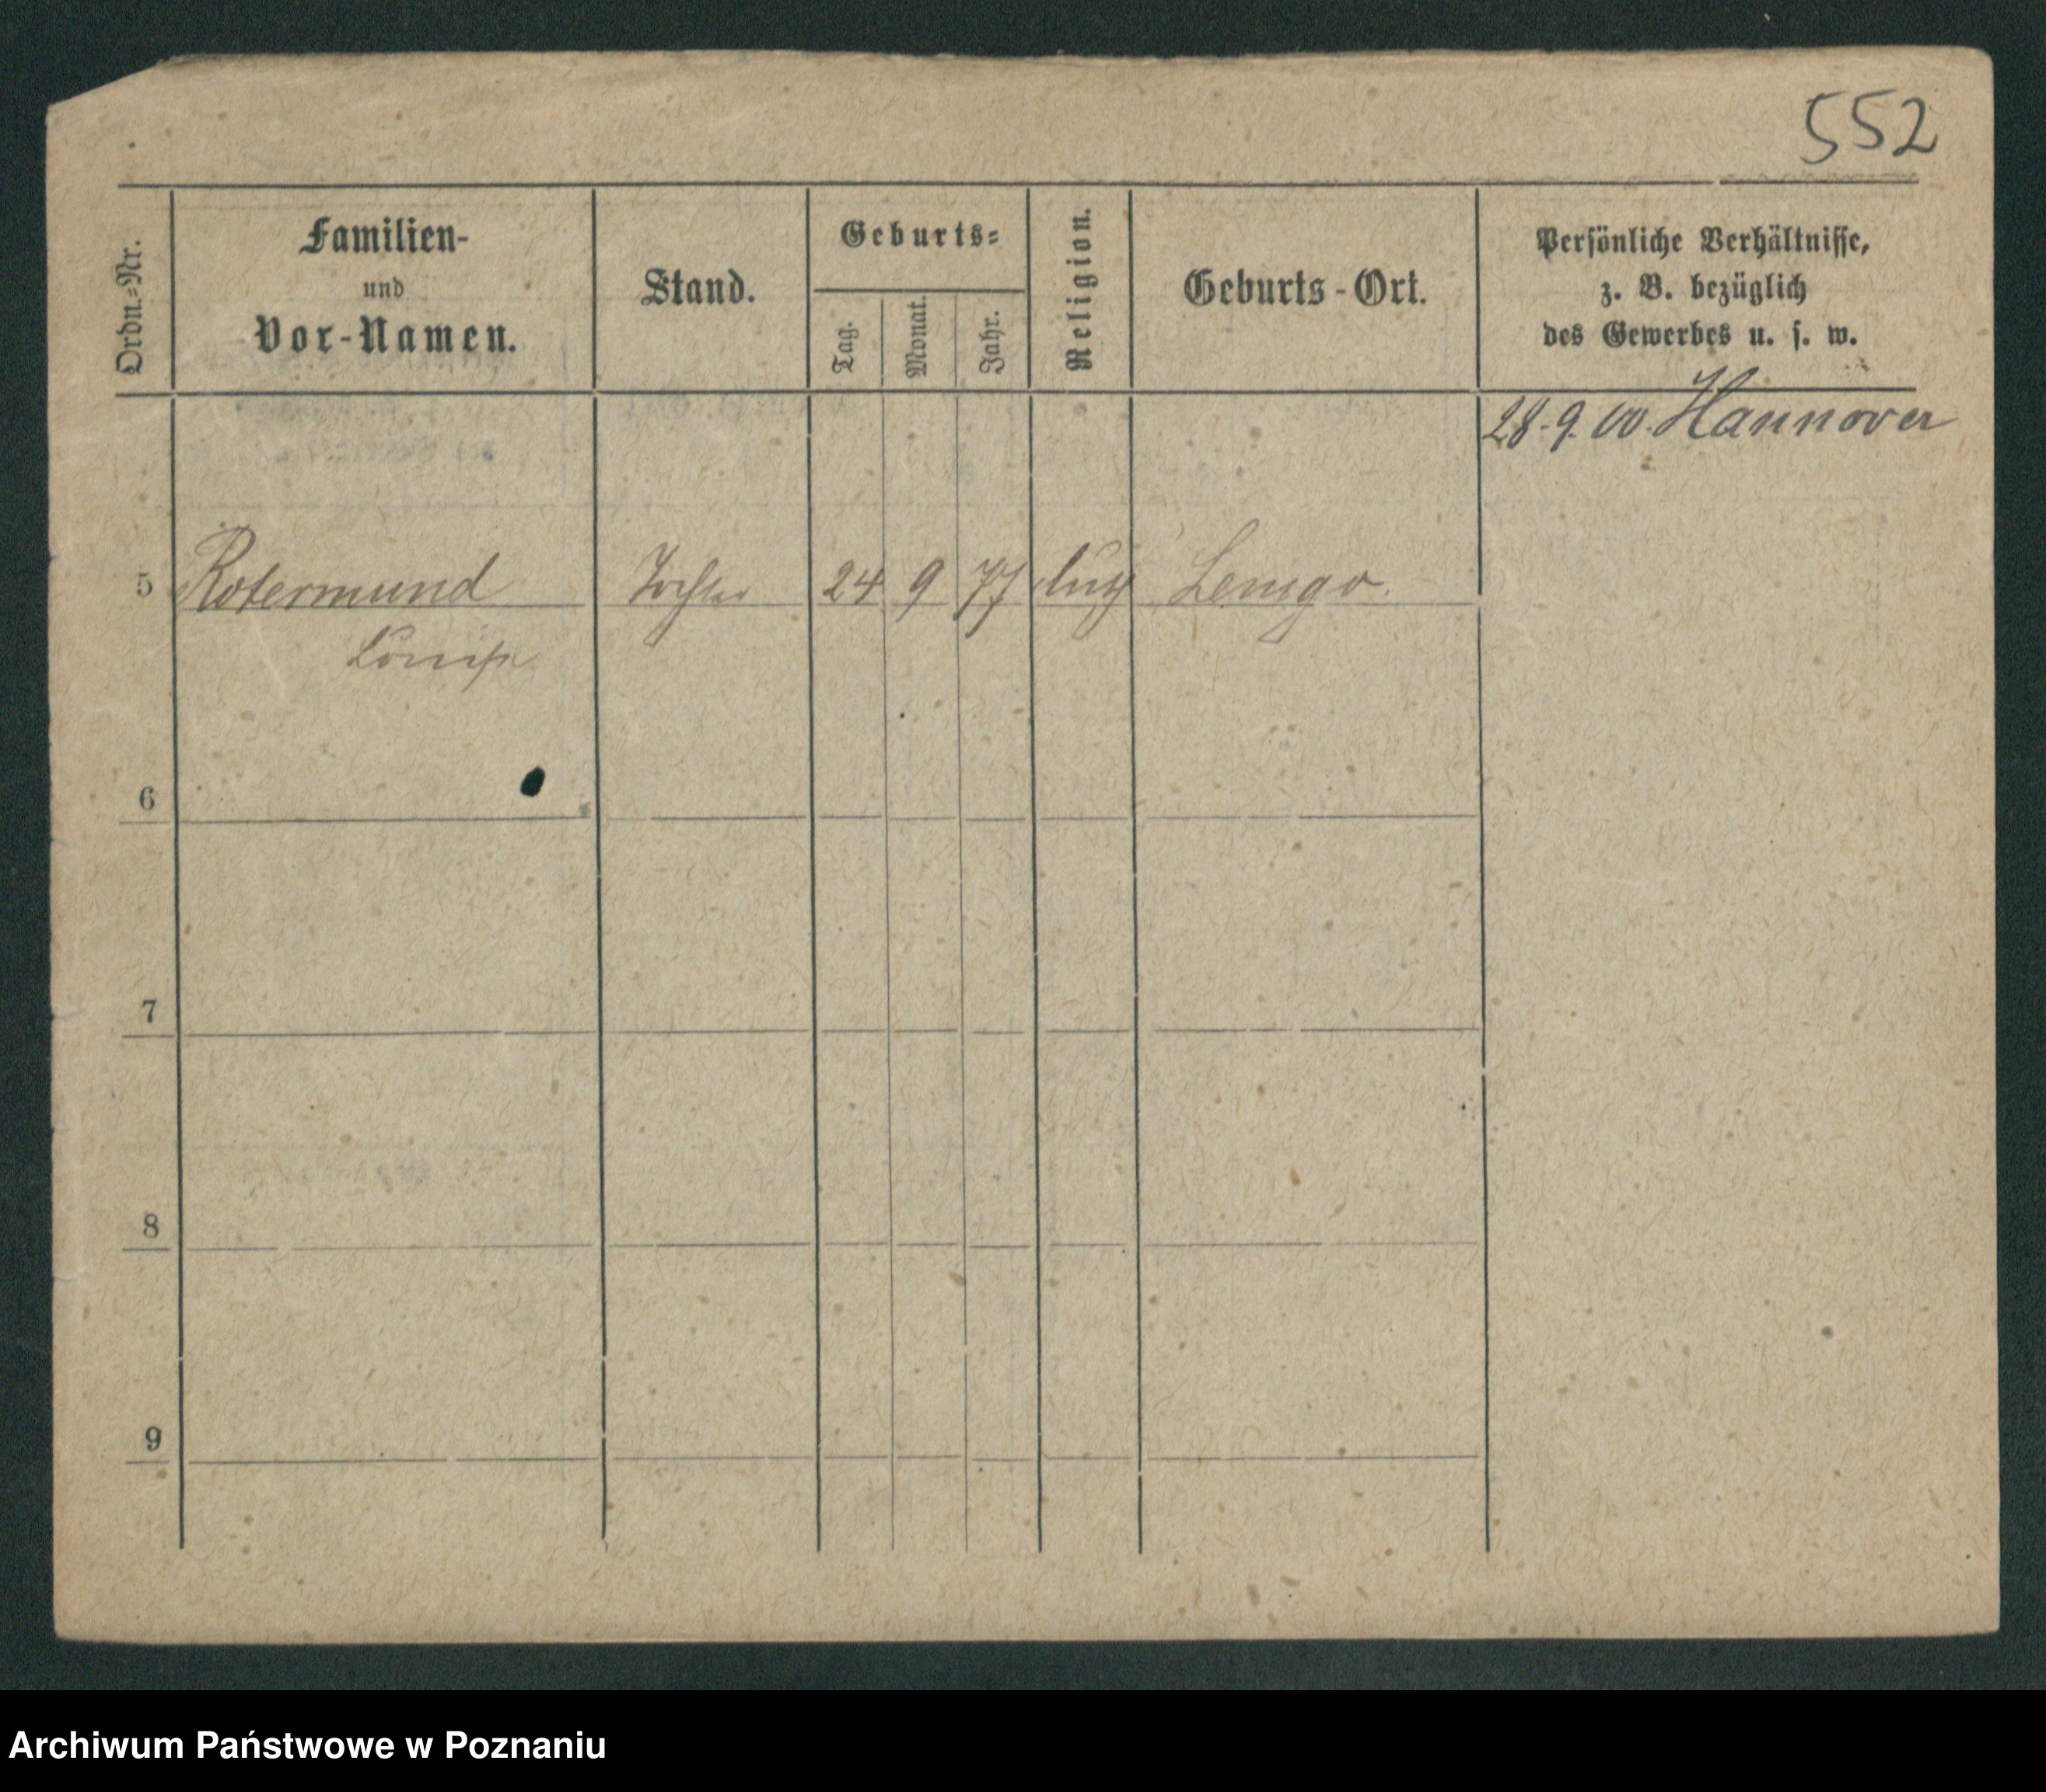 552
Ordn.-Nr.
Familien-
und
Vor-Namen.
Stand.
Geburts-
Tag.
Monat.
Jahr.
Religion.
Geburts-Ort.
Persönliche Verhältnisse,
z. B. bezüglich
des Gewerbes u. s. w.
28. 9. 00. Hannover
5 Rotermund Tochter 24 9 77 Lemgo.
Louise
6
7
8
9
Archiwum Państwowe w Poznaniu